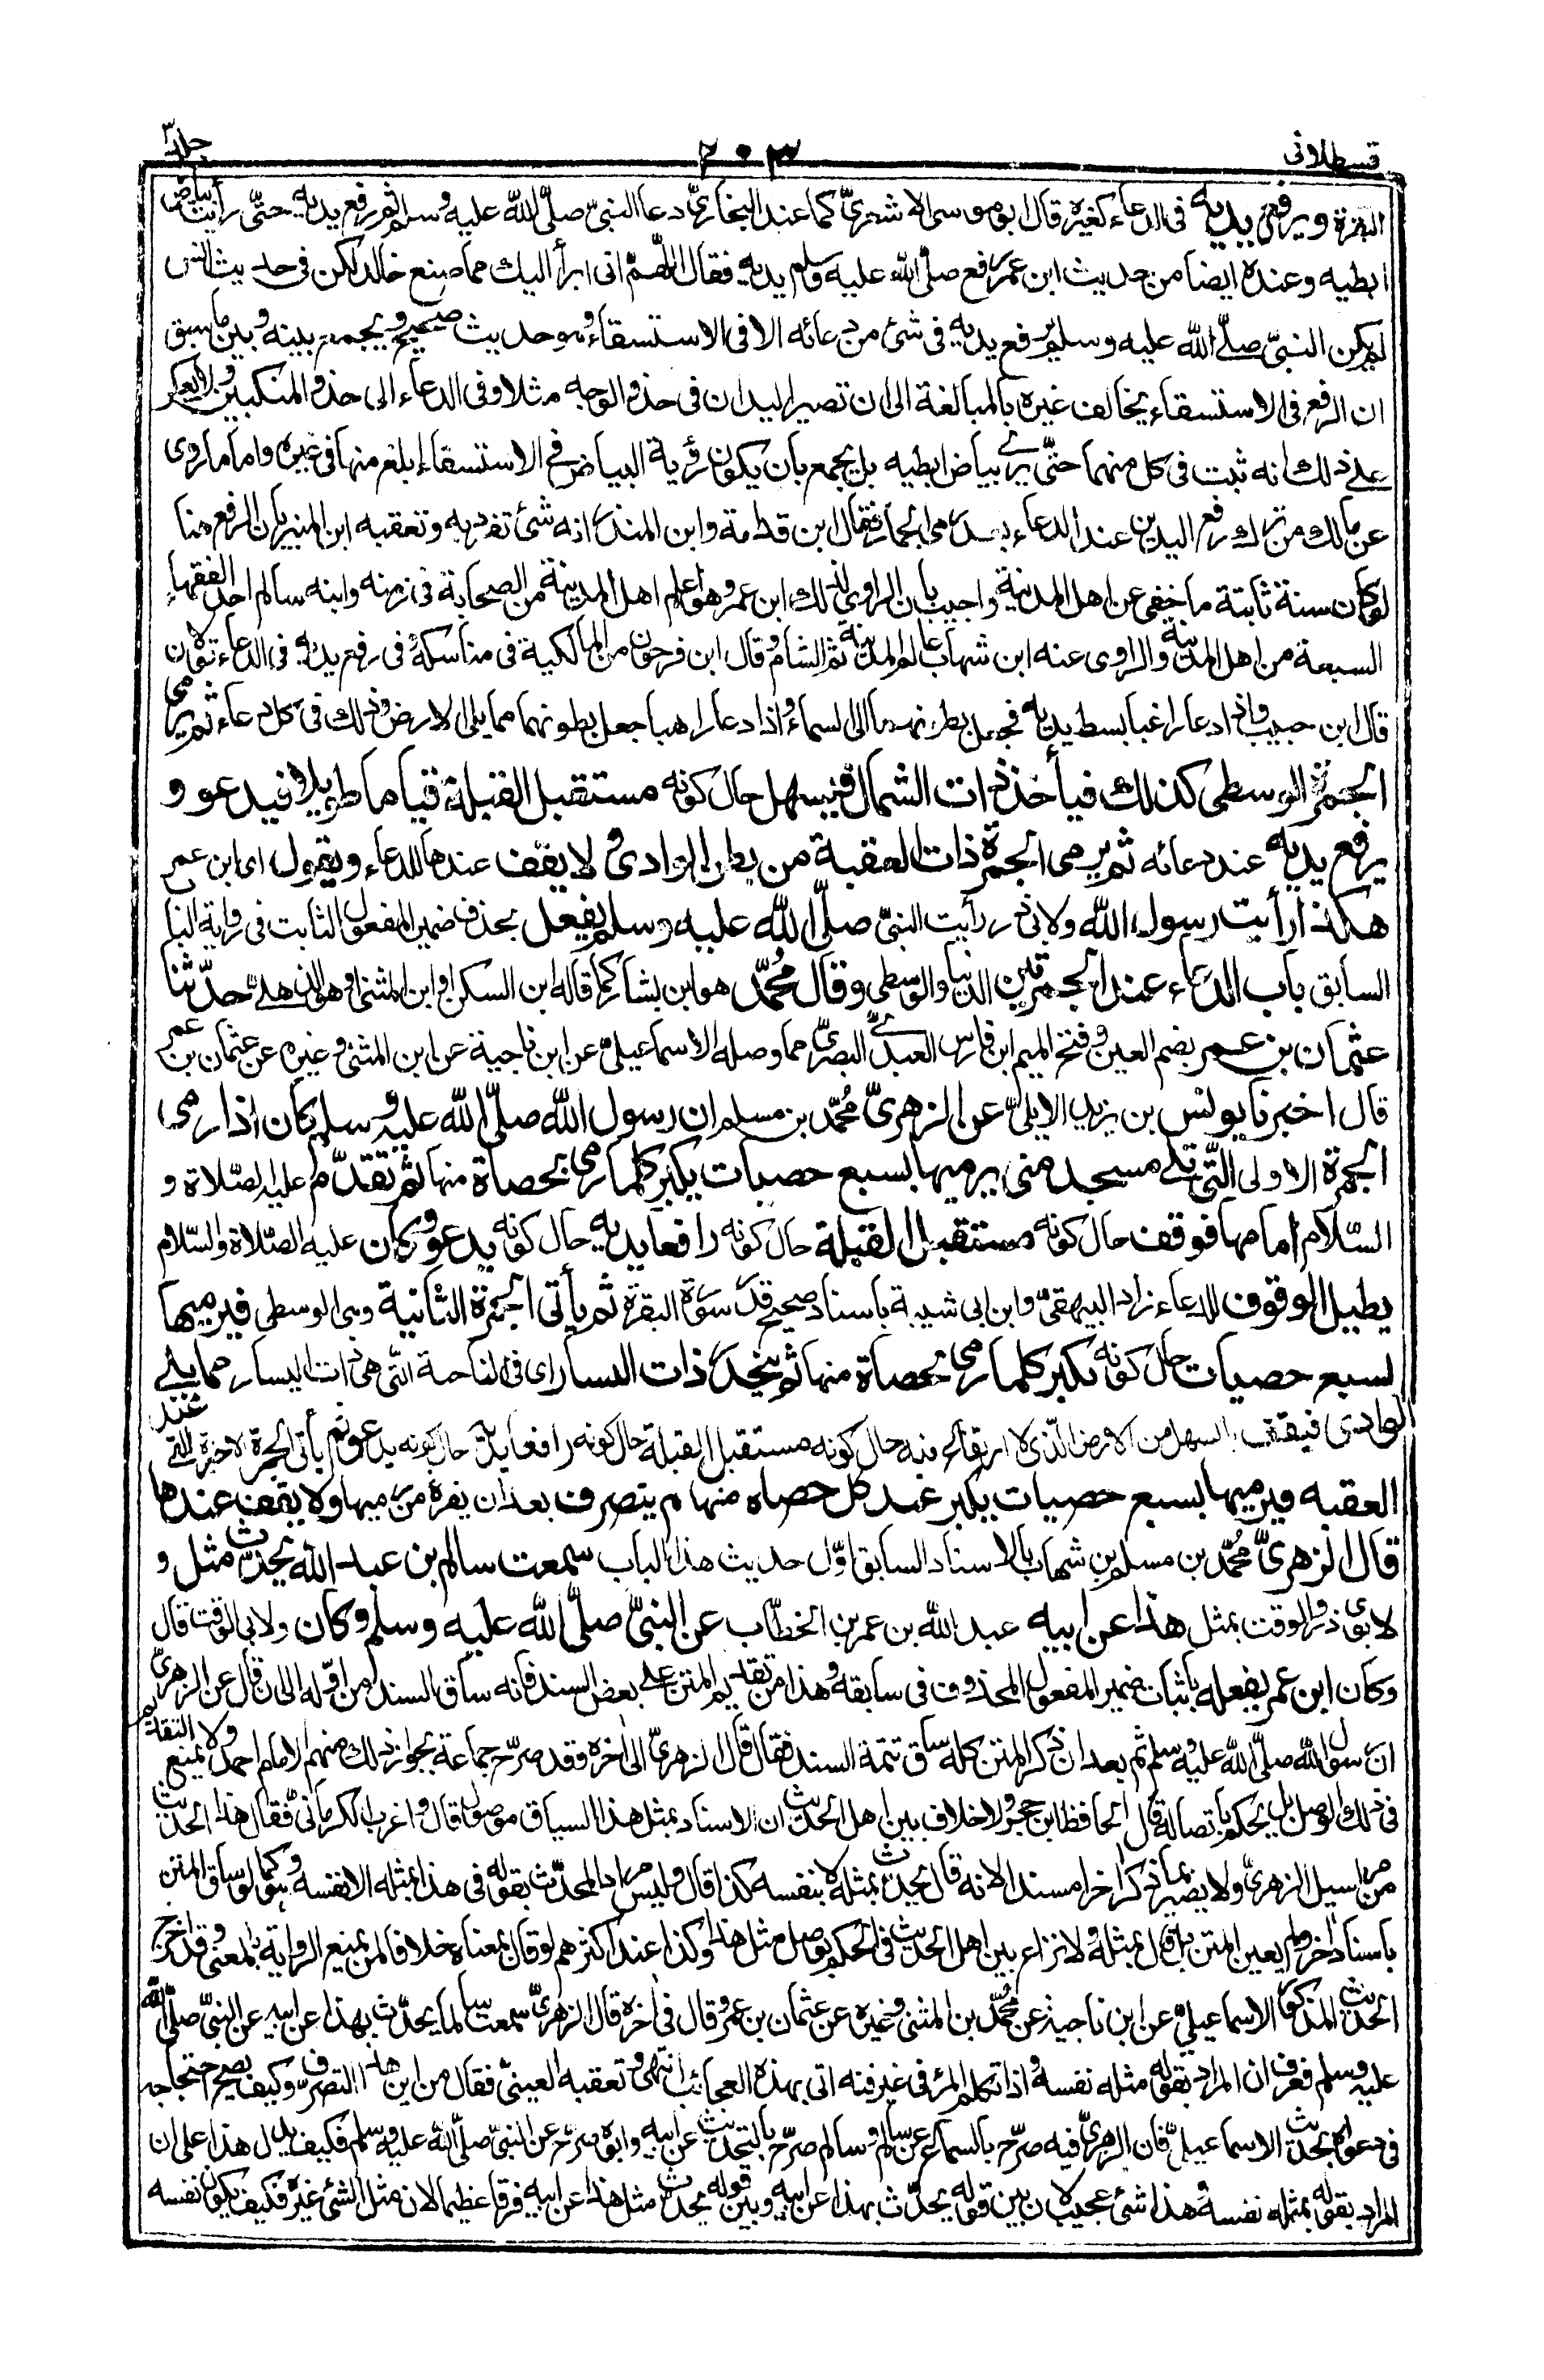 قسطلانى
٢٠٣
جلد ٣
البقرة ويرفع يديه فى الدعاء كغيره قال ابو موسى الاشعرىّ كما عند البخارىّ دعا النبىّ صلّى الله عليه وسلم ثم رفع يديه حتّى رأيت بياض
ابطيه وعنده ايضا من حديث ابن عمر رفع صلّى الله عليه وسلم يديه فقال اللّهمّ انى ابرأ اليك مما صنع خالد لكن فى حديث انس
لم يكن النبىّ صلّى الله عليه وسلم يرفع يديه فى شئ من دعائه الا فى الاستسقاء وهو حديث صحيح ويجمع بينه وبين ما سبق
ان الرفع فى الاستسقاء يخالف غيره بالمبالغة الى ان تصير اليدان فى حذو الوجه مثلا وفى الدعاء الى حذو المنكبين ولا يعكر
على ذلك انه ثبت فى كل منهما حتّى يرى بياض ابطيه بل يجمع بأن يكون رؤية البياض فى الاستسقاء ابلغ منها فى غيره واما ما روى
عن مالك من ترك رفع اليدين عند الدعاء بعد رمى الجمار فقال ابن قدامة وابن المنذر انه شئ تفرد به وتعقبه ابن المنير بأن الرفع هنا
لو كان سنة ثابتة ما خفى عن اهل المدينة واجيب بأن الراوى لذلك ابن عمر وهو اعلم اهل المدينة من الصحابة فى زمنه وابنه سالم احد الفقهاء
السبعة من اهل المدينة والراوى عنه ابن شهاب عالم المدينة ثم الشام وقال ابن فرحون من المالكية فى مناسكه فى رفع يديه فى الدعاء قولان
قال ابن حبيب واذا دعا راغبا بسط يديه فجعل بطونهما الى السماء واذا دعا راهبا جعل بطونهما مما يلى الارض وذلك فى كل دعاء ثم يرمى
الجمرة الوسطى كذلك فيأخذ ذات الشمال فيسهل حال كونه مستقبل القبلة قياما طويلا فيدعو و
يرفع يديه عند دعائه ثم يرمى الجمرة ذات العقبة من بطن الوادى ولا يقف عندها للدعاء ويقول اى ابن عمر
هكذا رأيت رسول الله ولابى ذر رأيت النبىّ صلّى الله عليه وسلم يفعل بحذف ضمير المفعول الثابت فى رواية البا
السابق باب الدعاء عند الجمرتين الدنيا والوسطى وقال مُحمّد هو ابن بشار كما قاله ابن السكن او ابن المثنى او هو الذهلى حدّثنا
عثمان بن عمر بضم العين وفتح الميم ابن فارس العبدىّ البصرىّ مما وصله الاسماعيلى عن ابن ناجية عن ابن المثنى وغيره عن عثمان بن عمر
قال اخبرنا يونس بن يزيد الايلىّ عن الزهرىّ مُحمّد بن مسلم ان رسول الله صلّى الله عليه وسلم كان اذا رمى
الجمرة الاولى الّتى تلى مسجد منى يرميها بسبع حصيات يكبر كلما رمى بحصاة منها ثم تقدّم عليه الصّلاة و
السّلام امامها فوقف حال كونه مستقبل القبلة حال كونه رافعا يديه حال كونه يدعو وكان عليه الصّلاة والسّلام
يطيل الوقوف للدعاء زاد البيهقىّ وابن ابى شيبة باسناد صحيح قدر سورة البقرة ثم يأتى الجمرة الثانية وهى الوسطى فيرميها
بسبع حصيات حال كونه يكبر كلما رمى بحصاة منها ثم ينحدر ذات اليسار اى فى الناحية التى هى ذات اليسار مما يلى
الوادى فيقف بالسهل من الارض الذى لا ارتفاع فيه حال كونه مستقبل القبلة حال كونه رافعا يديه حال كونه يدعو ثم يأتى الجمرة الاخيرة التى عند
العقبة فيرميها بسبع حصيات يكبر عند كل حصاة منها ثم ينصرف بعد ان يفرغ من رميها ولا يقف عندها
قال الزهرىّ مُحمّد بن مسلم بن شهاب بالاسناد السابق اوّل حديث هذا الباب سمعت سالم بن عبد الله يحدّث مثل و
لابى ذر والوقت بمثل هذا عن ابيه عبد الله بن عمر بن الخطّاب عن النبىّ صلّى الله عليه وسلم وكان ولابى الوقت قال
وكان ابن عمر يفعله باثبات ضمير المفعول المحذوف فى سابقه وهذا من تقديم المتن على بعض السند فانه ساق السند من اوّله الى ان قال عن الزهرىّ
ان رسول الله صلّى الله عليه وسلم ثم بعد ان ذكر المتن كله ساق تتمة السند فقال قال الزهرىّ الى اخره فقد صرّح جماعة بجواز ذلك منهم الامام احمد ولا يمنع التقديم
فى ذلك الوصل بل يحكم باتصاله قال الحافظ ابن حجر ولا خلاف بين اهل الحديث ان الاسناد بمثل هذا السياق موصول قال واغرب الكرمانىّ فقال هذا الحديث
من مراسيل الزهرىّ ولا يصير بما ذكر اخرا مسندا لانه قال يحدث بمثله لا بنفسه كذا قال وليس مراد المحدّث بقوله فى هذا بمثله الا نفسه وهو كما لو ساق المتن
باسناد اخر ولم يعين المتن بل قال بمثله ولا نزاع بين اهل الحديث فى الحكم بوصل مثل هذا وكذا عند اكثرهم لو قال بمعناه خلافا لمن يمنع الرواية بالمعنى وقد اخرج
الحديث المذكور الاسماعيلىّ عن ابن ناجية عن مُحمّد بن المثنى وغيره عن عثمان بن عمر وقال فى اخره قال الزهرىّ سمعت سالما يحدّث بهذا عن ابيه عن النبىّ صلّى الله
عليه وسلم فعرف ان المراد بقوله مثله نفسه واذا تكلم المرء فى غير فنه اتى بهذه العجائب انتهى وتعقبه العينىّ فقال من اين هذا التصرّف وكيف يصح احتجاجه
فى دعواه بحديث الاسماعيلىّ فان الزهرىّ فيه صرّح بالسماع عن سالم وسالم صرّح بالتحديث عن ابيه وابوه صرّح عن النبىّ صلّى الله عليه وسلم فكيف يدل هذا على ان
المراد بقوله بمثله نفسه وهذا شئ عجيب لان بين قوله يحدّث بهذا عن ابيه وبين قوله يحدّث مثل هذا عن ابيه فرقا عظيما لان مثل الشئ غيره فكيف يكون نفسه